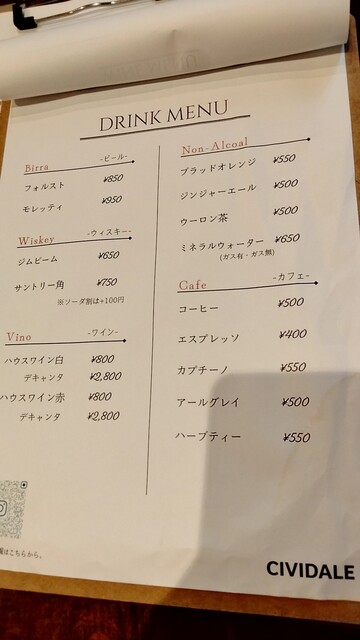 DRINK MENU
Birra -ビール-
フォルスト ¥850
モレッティ ¥950
Wiskey -ウィスキー-
ジムビーム ¥650
サントリー角 ¥750
※ソーダ割は+100円
Vino -ワイン-
ハウスワイン白 ¥800
デキャンタ ¥2,800
ハウスワイン赤 ¥800
デキャンタ ¥2,800
はこちらから。
Non-Alcoal
ブラッドオレンジ ¥550
ジンジャーエール ¥500
ウーロン茶 ¥500
ミネラルウォーター ¥650
(ガス有・ガス無)
Cafe -カフェ-
コーヒー ¥500
エスプレッソ ¥400
カプチーノ ¥550
アールグレイ ¥500
ハーブティー ¥550
CIVIDALE